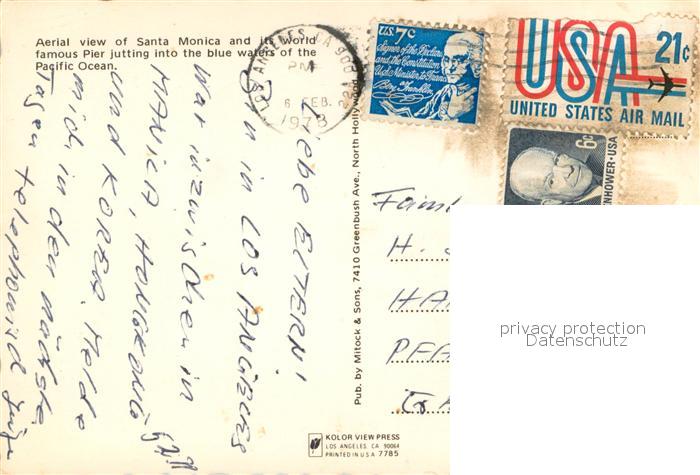 Aerial view of Santa Monica and its world
famous Pier jutting into the blue waters of the
Pacific Ocean.
LOS ANGELES, CA
PM
6 FEB.
1978
U.S. 7c
Signer of the Declaration
and the Constitution
Benj. Franklin
USA 21c
UNITED STATES AIR MAIL
6c
EISENHOWER·USA
Liebe ELTERN!
Bin in LOS ANGELES
War inzwischen in
MANILA, HONGKONG
und KOREA. Melde
mich in den nächsten
Tagen telephonisch
Pub. by Mitock & Sons, 7410 Greenbush Ave., North Hollywood
H.
HA
PFA
privacy protection
Datenschutz
KOLOR VIEW PRESS
LOS ANGELES, CA 90064
PRINTED IN USA 7785